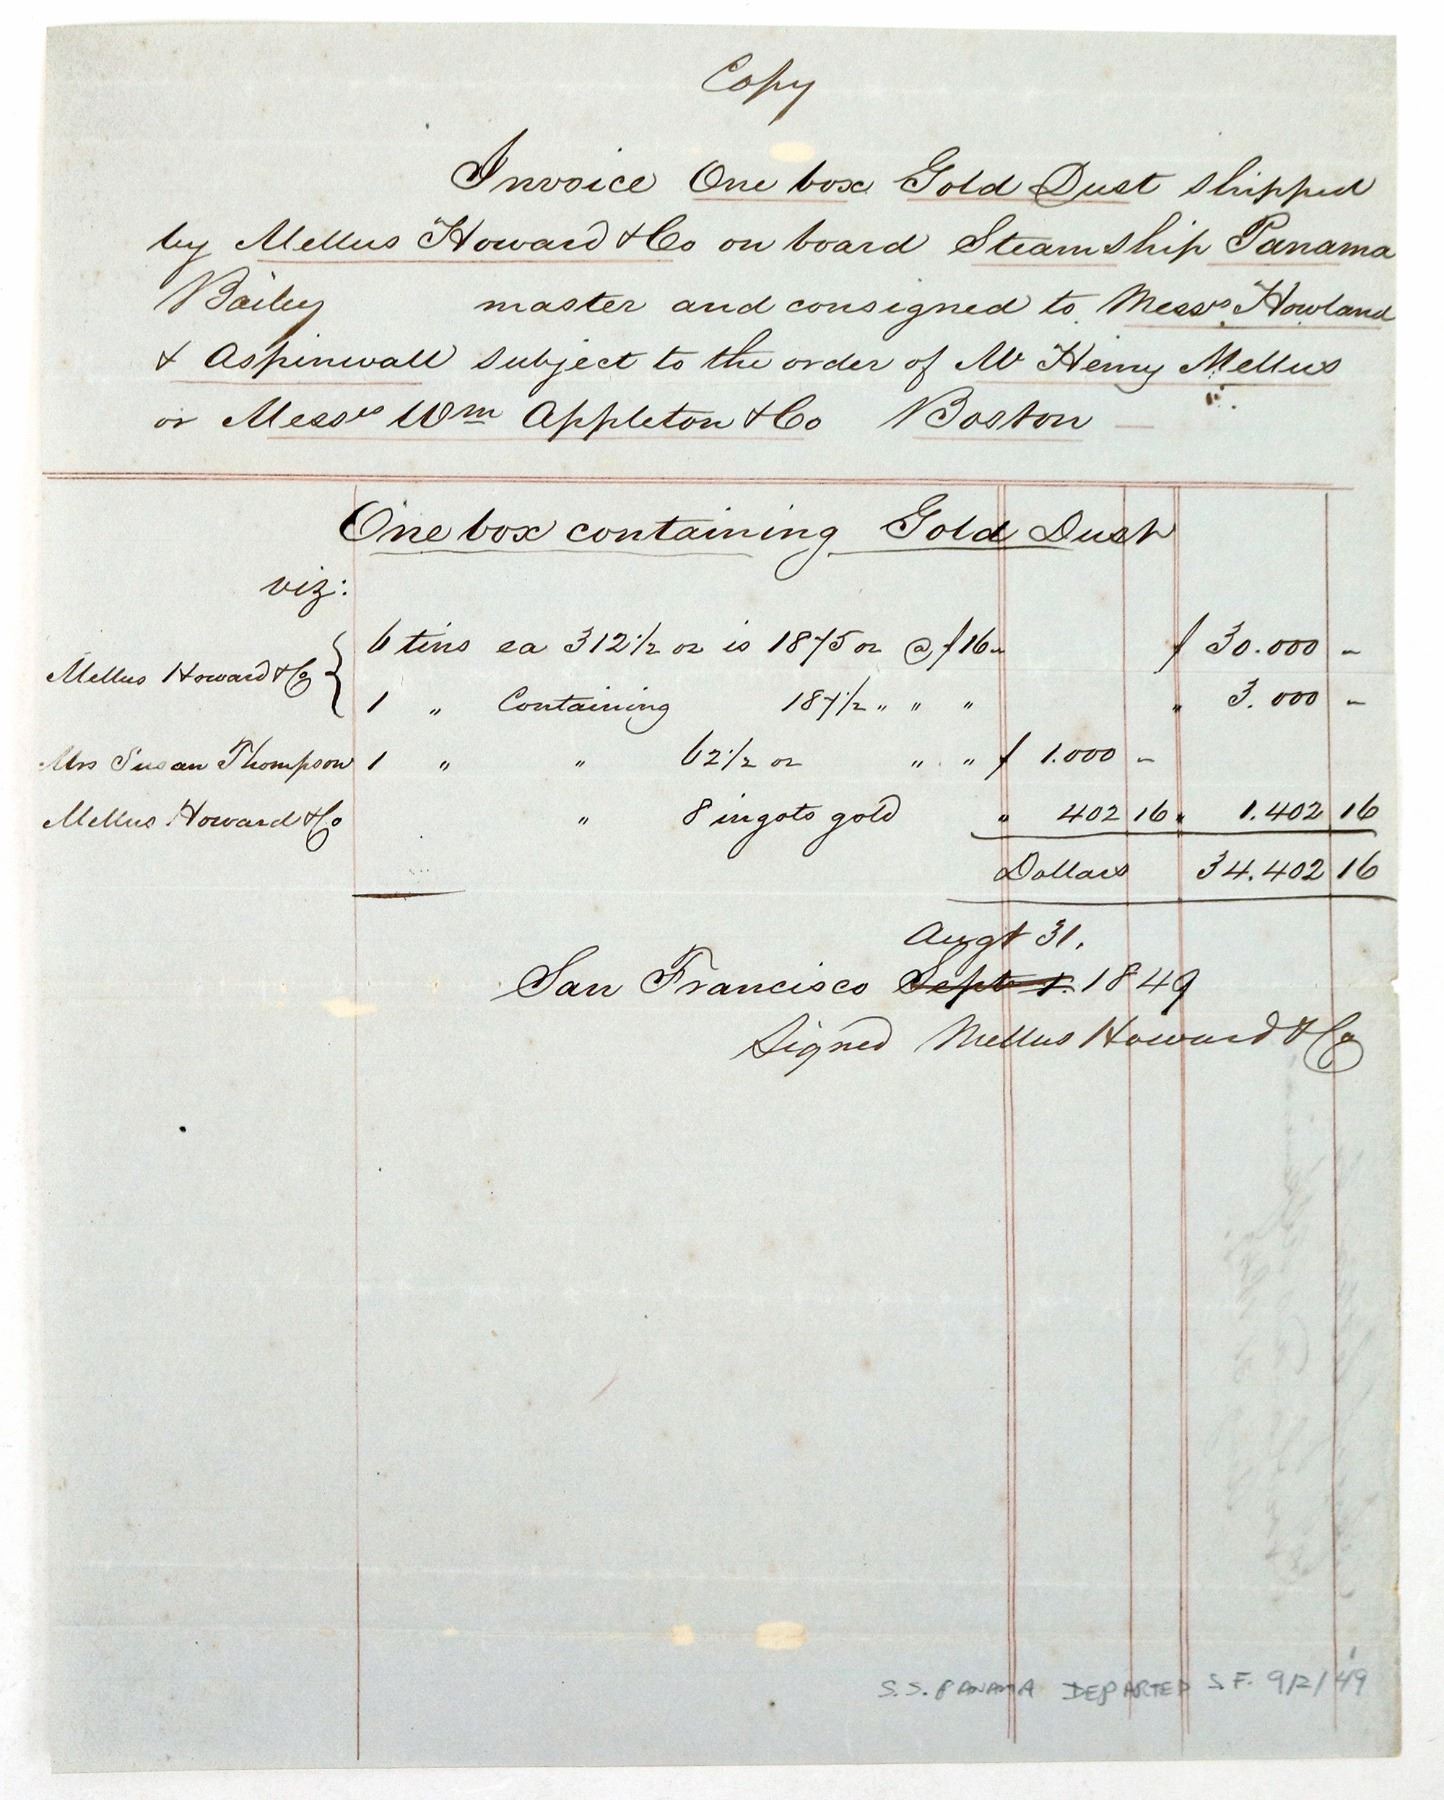 Copy
Invoice One box Gold Dust shipped
by Mellus Howard & Co on board Steam ship Panama
Bailey master and consigned to Messrs Howland
& Aspinwall subject to the order of Mr Henry Mellus
or Messrs Wm Appleton & Co Boston
One box containing Gold Dust
viz:
Mellus Howard & Co { 6 tins ea 312 1/2 oz is 1875 oz @ $16 - $ 30.000 -
1 " Containing 187 1/2 " " " " 3.000 -
Mrs Susan Thompson 1 " " 62 1/2 oz " " $ 1.000 -
Mellus Howard & Co " 8 ingots gold " 402 16 " 1.402 16
Dollars 34.402 16
Augt 31.
San Francisco Sept 1. 1849
Signed Mellus Howard & Co
S.S. PANAMA DEPARTED S.F. 9/2/49